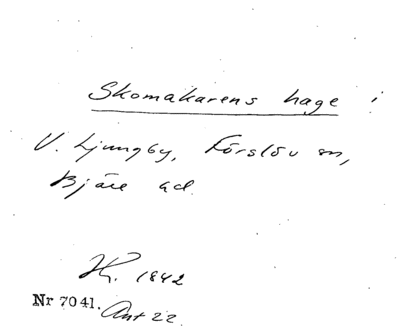 Skomakarens hage i
V. Ljungby, Förslöv sn,
Bjäre hd.
K. 1842
Nr 7041. Ant 22.